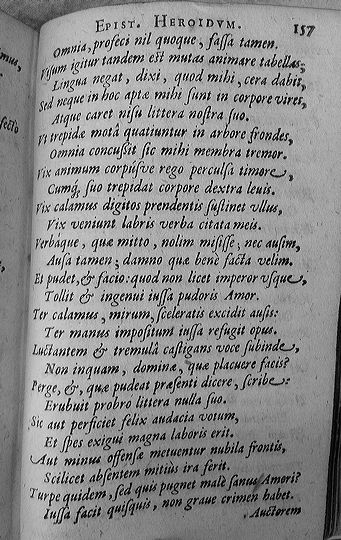 EPIST. HEROIDVM. 157
Omnia, profeci nil quoque, fassa tamen.
Visum igitur tandem est mutas animare tabellas;
Lingua negat, dixi, quod mihi, cera dabit,
Sed neque in hoc aptæ mihi sunt in corpore vires,
Atque caret nisu littera nostra suo.
Vt trepidæ motâ quatiuntur in arbore frondes,
Omnia concussit sic mihi membra tremor.
Vix animum corpúsve rego perculsa timore,
Cumq, suo trepidat corpore dextra levis.
Vix calamus digitos prendentis sustinet vllus,
Vix veniunt labris verba citata meis.
Verbáque, quæ mitto, nolim misisse; nec ausim,
Ausa tamen; damno quæ benè facta velim.
Et pudet, & facio: quod non licet imperor vsque,
Tollit & ingenui iussa pudoris Amor.
Ter calamus, mirum, sceleratis excidit ausis:
Ter manus impositum iussa refugit opus.
Luctantem & tremulâ castigans voce subinde,
Non inquam, dominæ, quæ placuere facis?
Perge, &, quæ pudeat præsenti dicere, scribe:
Erubuit probro littera nulla suo.
Sic aut perficiet felix audacia votum,
Et spes exigui magna laboris erit.
Aut minus offensæ metuentur nubila frontis,
Scilicet absentem mitius ira ferit.
Turpe quidem, sed quis pugnet malè sanus Amori?
Iussa facit quisquis, non graue crimen habet.
Auctorem